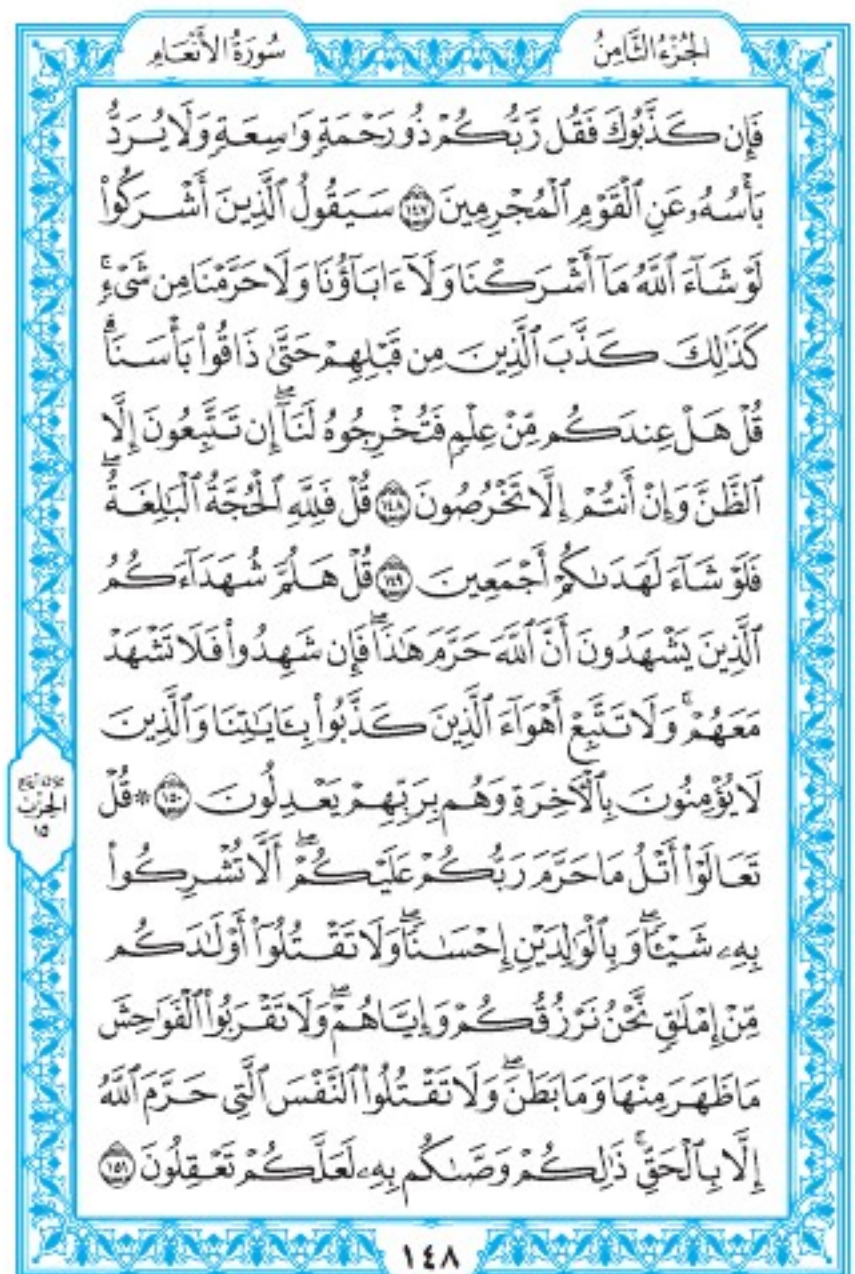 الجُزْءُ الثَّامِنُ
سُورَةُ الأَنْعَامِ
فَإِن كَذَّبُوكَ فَقُل رَّبُّكُمْ ذُو رَحْمَةٍ وَٰسِعَةٍ وَلَا يُرَدُّ
بَأْسُهُۥ عَنِ ٱلْقَوْمِ ٱلْمُجْرِمِينَ ١٤٧ سَيَقُولُ ٱلَّذِينَ أَشْرَكُوا۟
لَوْ شَآءَ ٱللَّهُ مَآ أَشْرَكْنَا وَلَآ ءَابَآؤُنَا وَلَا حَرَّمْنَا مِن شَىْءٍۚ
كَذَٰلِكَ كَذَّبَ ٱلَّذِينَ مِن قَبْلِهِمْ حَتَّىٰ ذَاقُوا۟ بَأْسَنَاۗ
قُلْ هَلْ عِندَكُم مِّنْ عِلْمٍ فَتُخْرِجُوهُ لَنَآۖ إِن تَتَّبِعُونَ إِلَّا
ٱلظَّنَّ وَإِنْ أَنتُمْ إِلَّا تَخْرُصُونَ ١٤٨ قُلْ فَلِلَّهِ ٱلْحُجَّةُ ٱلْبَٰلِغَةُۖ
فَلَوْ شَآءَ لَهَدَىٰكُمْ أَجْمَعِينَ ١٤٩ قُلْ هَلُمَّ شُهَدَآءَكُمُ
ٱلَّذِينَ يَشْهَدُونَ أَنَّ ٱللَّهَ حَرَّمَ هَٰذَاۖ فَإِن شَهِدُوا۟ فَلَا تَشْهَدْ
مَعَهُمْۚ وَلَا تَتَّبِعْ أَهْوَآءَ ٱلَّذِينَ كَذَّبُوا۟ بِـَٔايَٰتِنَا وَٱلَّذِينَ
لَا يُؤْمِنُونَ بِٱلْـَٔاخِرَةِ وَهُم بِرَبِّهِمْ يَعْدِلُونَ ١٥٠ * قُلْ
تَعَالَوْا۟ أَتْلُ مَا حَرَّمَ رَبُّكُمْ عَلَيْكُمْۖ أَلَّا تُشْرِكُوا۟
بِهِۦ شَيْـًٔاۖ وَبِٱلْوَٰلِدَيْنِ إِحْسَٰنًاۖ وَلَا تَقْتُلُوٓا۟ أَوْلَٰدَكُم
مِّنْ إِمْلَٰقٍ نَّحْنُ نَرْزُقُكُمْ وَإِيَّاهُمْۖ وَلَا تَقْرَبُوا۟ ٱلْفَوَٰحِشَ
مَا ظَهَرَ مِنْهَا وَمَا بَطَنَۖ وَلَا تَقْتُلُوا۟ ٱلنَّفْسَ ٱلَّتِى حَرَّمَ ٱللَّهُ
إِلَّا بِٱلْحَقِّۚ ذَٰلِكُمْ وَصَّىٰكُم بِهِۦ لَعَلَّكُمْ تَعْقِلُونَ ١٥١
ثلاثة أرباع
الحزب
١٥
١٤٨